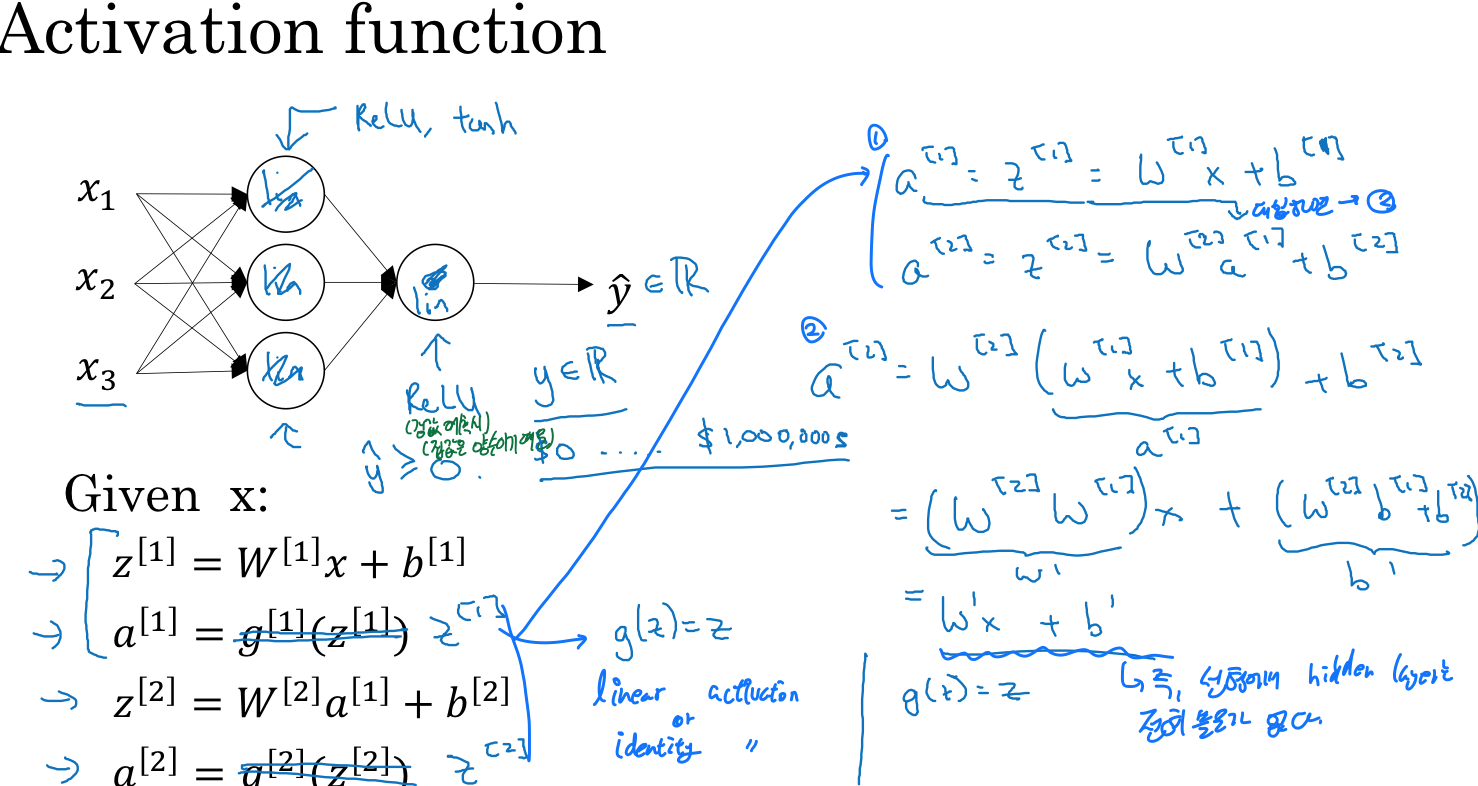 Activation function
ReLU, tanh
x₁
x₂
x₃
lin
ŷ ∈ ℝ
ReLU
(집값 예측시)
(집값은 양수이기 때문)
ŷ ≥ 0.
y ∈ ℝ
$0 ..... $1,000,000s
Given x:
→ z^[1] = W^[1]x + b^[1]
→ a^[1] = g^[1](z^[1]) z^[1]
→ z^[2] = W^[2]a^[1] + b^[2]
→ a^[2] = g^[2](z^[2]) z^[2]
g(z) = z
linear activation
or
identity 〃
① a^[1] = z^[1] = W^[1]x + b^[1]
대입하면 → ②
a^[2] = z^[2] = W^[2]a^[1] + b^[2]
② a^[2] = W^[2](W^[1]x + b^[1]) + b^[2]
a^[1]
= (W^[2]W^[1])x + (W^[2]b^[1] + b^[2])
W' b'
= W'x + b'
g(z) = z
↳ 즉, hidden layer는
전혀 쓸모가 없다.